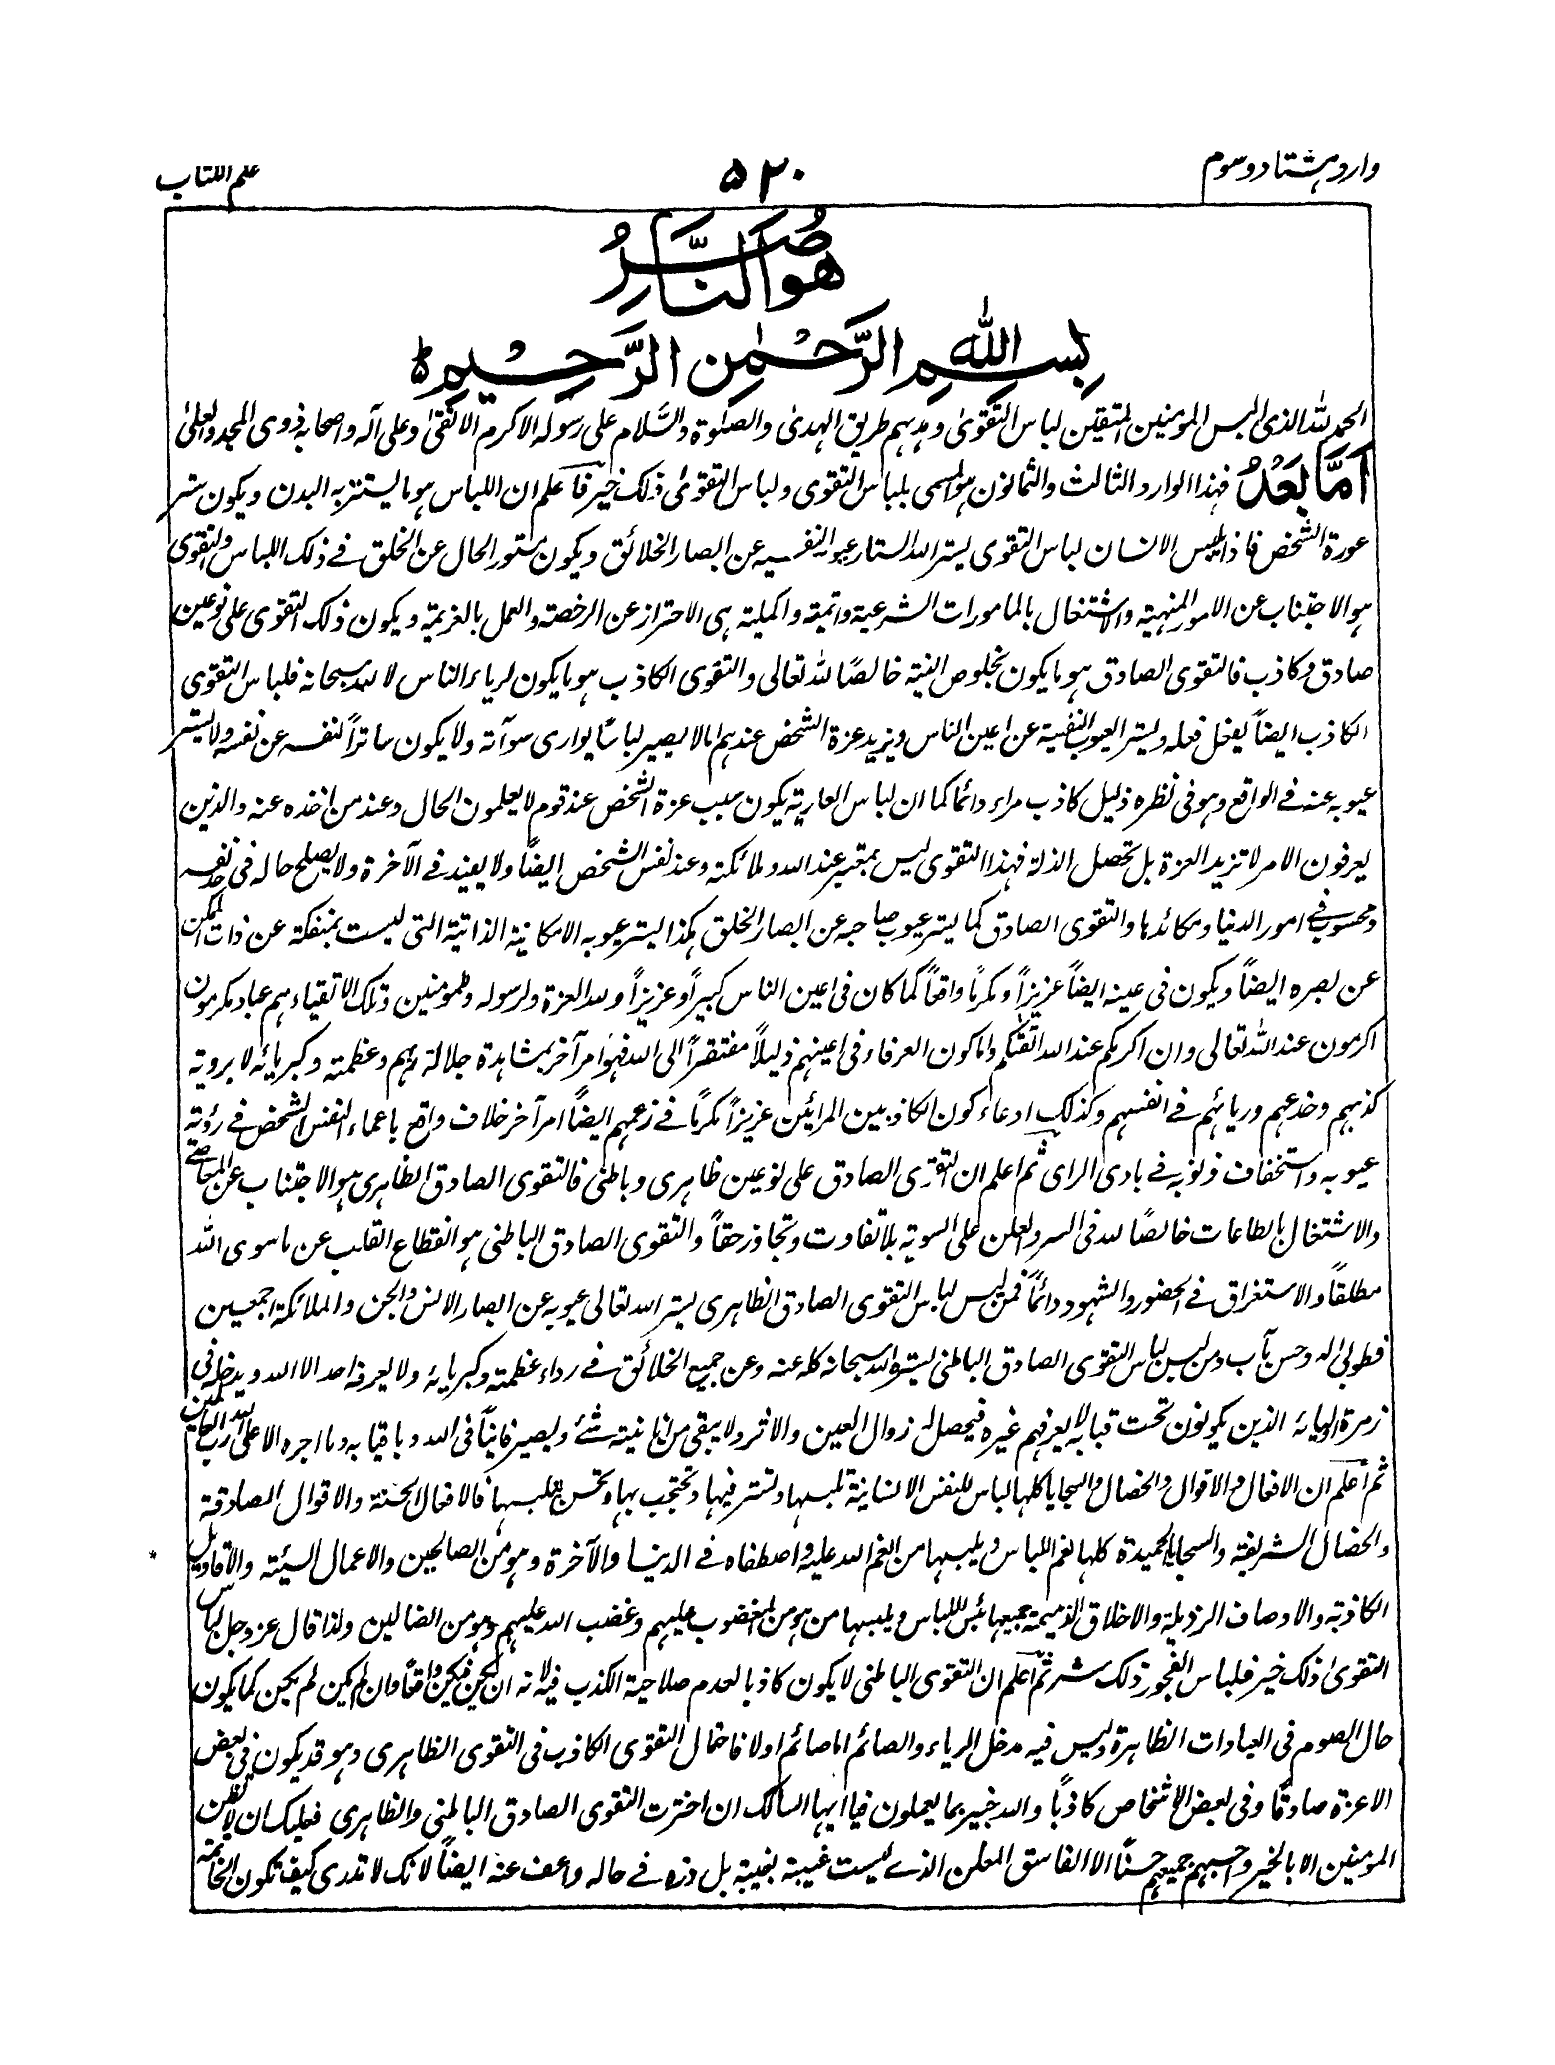 وارد ہشتاد و سوم
۵۲۰
علم الکتاب
هو الناصر
بسم الله الرحمن الرحيم ط
الحمد لله الذی البس المومنین المتقین لباس التقوی وہدہم طریق الہدیٰ والصلوۃ والسلام علی رسولہ الاکرم الاتقیٰ وعلی آلہ واصحابہ ذوی المجد والعلیٰ
اما بعد فہذا الوارد الثالث والثمانون ہو المسمی بلباس التقوی ولباس التقویٰ ذلک خیر فاعلم ان اللباس ہو ما یستتر بہ البدن ویکون ستر
عورۃ الشخص فاذا لبس الانسان لباس التقوی یستر اللہ الستار عیوبہ النفسیہ عن ابصار الخلائق ویکون مستور الحال عن الخلق فی ذلک اللباس والتقوی
ہو الاجتناب عن الامور المنہیۃ والاشتغال بالمامورات الشرعیۃ واتمیتہ واکملیتہ ہی الاحتراز عن الرخصۃ والعمل بالعزیمۃ ویکون ذلک التقوی علی نوعین
صادق وکاذب فالتقوی الصادق ہو ما یکون بخلوص النیۃ خالصًا للہ تعالی والتقوی الکاذب ہو ما یکون لریاء الناس لا للہ سبحانہ فلباس التقوی
الکاذب ایضاً یفعل فعلہ ویستر العیوب النفسیۃ عن اعین الناس ویزید عزۃ الشخص عندہم اما لا یصیر لباسًا یواری سوآتہ ولا یکون ساتراً لنفسہ عن نفسہ ولا یستر
عیوبہ عنہ فی الواقع وہو فی نظرہ ذلیل کاذب مراء دائما کما ان لباس العاریۃ یکون سبب عزۃ الشخص عند قوم لا یعلمون الحال وعند من اخذہ عنہ والذین
یعرفون الامر لا تزید العزۃ بل تحصل الذلۃ فہذا التقوی لیس بمعتبر عند اللہ وملائکتہ وعند نفس الشخص ایضًا ولا یفید فی الآخرۃ ولا یصلح حالہ فی نفسہ
ومحسوب فی امور الدنیا ومکائدہا والتقوی الصادق کما یستر عیوب صاحبہ عن ابصار الخلق ہکذا یستر عیوبہ الامکانیۃ الذاتیۃ التی لیست بمنفکۃ عن ذات الممکن
عن بصرہ ایضًا ویکون فی عینہ ایضاً عزیزاً ومکرمًا واقعاً کما کان فی اعین الناس کبیراً وعزیزاً وللہ العزۃ ولرسولہ وللمومنین وتلک الاتقیاء ہم عباد مکرمون
اکرمون عند اللہ تعالی وان اکرمکم عند اللہ اتقکم واما کون العرفاء فی اعینہم ذلیلاً مفتقراً الی اللہ فہو امر آخر بمشاہدۃ جلالۃ ربہم وعظمتہ وکبریائہ لا برویۃ
کذبہم وخدعہم وریائہم فی انفسہم وکذلک ادعاء کون الکاذبین المرائین عزیزاً مکرمًا فی زعمہم ایضاً امر آخر خلاف واقع باعماء النفس الشخص فی رؤیۃ
عیوبہ واستخفاف ذنوبہ فی بادی الرای ثم اعلم ان التقوی الصادق علی نوعین ظاہری وباطنی فالتقوی الصادق الظاہری ہو الاجتناب عن المعاصی
والاشتغال بالطاعات خالصًا للہ فی السر والعلن علی السویۃ بلا تفاوت وتجاوز حقاً والتقوی الصادق الباطنی ہو انقطاع القلب عن ماسوی اللہ
مطلقاً والاستغراق فی الحضور والشہود دائماً فمن لبس لباس التقوی الصادق الظاہری یستر اللہ تعالی عیوبہ عن ابصار الانس والجن والملائکۃ اجمعین
فطوبیٰ لہ وحسن مآب ومن لبس لباس التقوی الصادق الباطنی یسترہ اللہ سبحانہ کلہ عنہ وعن جمیع الخلائق فی رداء عظمتہ وکبریائہ ولا یعرفہ احد الا اللہ ویدخلہ فی
زمرۃ اولیائہ الذین یکونون تحت قبائہ لا یعرفہم غیرہ فیحصل لہ زوال العین والاثر ولا یبقی من انانیتہ شئے ویصیر فانیاً فی اللہ وباقیا بہ وما اجرہ الا علی اللہ رب العالمین
ثم اعلم ان الافعال والاقوال والخصال والسجایا کلہا لباس للنفس الانسانیۃ تلبسہا وتستر فیہا وتحتجب بہا وتحسن بلبسہا فالافعال الحسنۃ والاقوال الصادقۃ
والخصال الشریفۃ والسجایا الحمیدۃ کلہا نعم اللباس ویلبسہا من انعم اللہ علیہ واصطفاہ فی الدنیا والآخرۃ وہو من الصالحین والاعمال السیئۃ والاقاویل
الکاذبۃ والاوصاف الرذیلۃ والاخلاق الذمیمۃ جمیعہا بئس اللباس ویلبسہا من ہو من المغضوب علیہم وغضب اللہ علیہم وہو من الضالین ولذا قال عز وجل لباس
التقویٰ ذلک خیر فلباس الفجور ذلک شر ثم اعلم ان التقوی الباطنی لا یکون کاذبا لعدم صلاحیۃ الکذب فیہ لانہ ان یکن فیکن واقعاً وان لم یکن لم یکن کما یکون
حال الصوم فی العبادات الظاہرۃ ولیس فیہ مدخل الریاء والصائم اما صائم او لا فاحتمال التقوی الکاذب فی التقوی الظاہری وہو قد یکون فی بعض
الاعزۃ صادقًا وفی بعض الاشخاص کاذباً واللہ خبیر بما یعملون فیا ایہا السالک ان اخترت التقوی الصادق الباطنی والظاہری فعلیک ان لا تظن
المومنین الا بالخیر واحسبہم جمیعہم حسنًا الا الفاسق المعلن الذے لیست غیبۃ بغیبۃ بل ذرہ فی حالہ واعف عنہ ایضاً لانک لا تدری کیف تکون الخاتمۃ